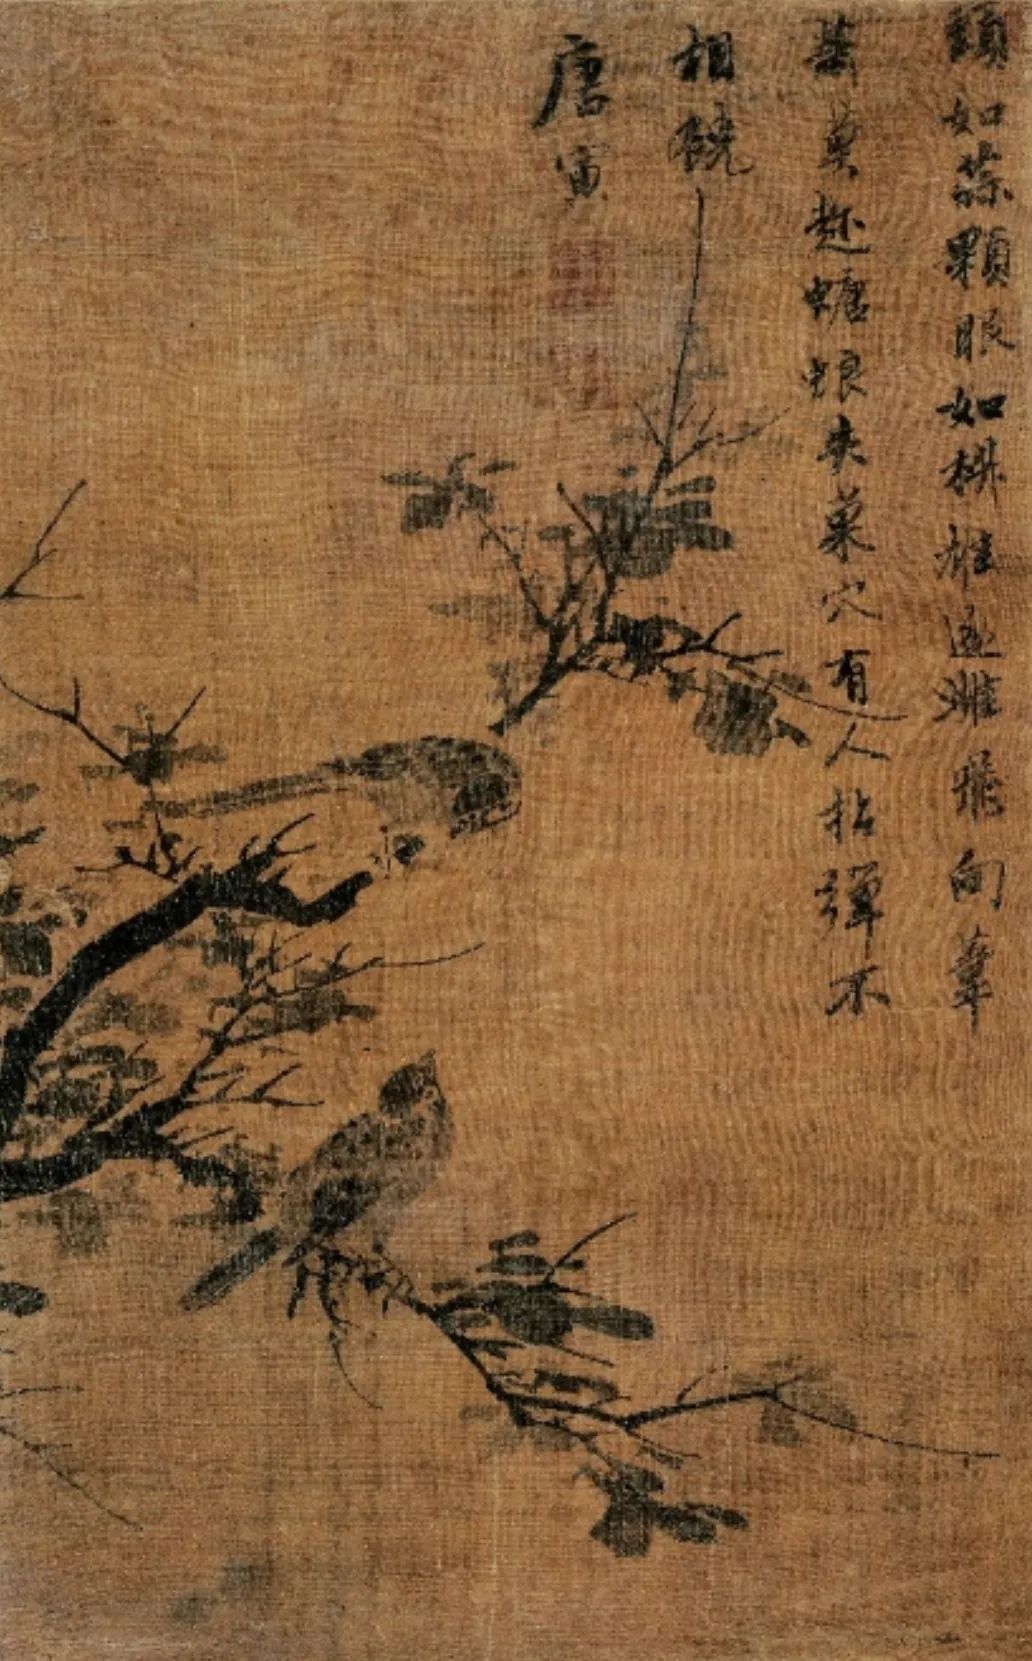 頭如蒜顆眼如椒雄逐雌飛向葦
蕭莫趂螗蜋失巢穴有人拈彈不
相饒
唐寅